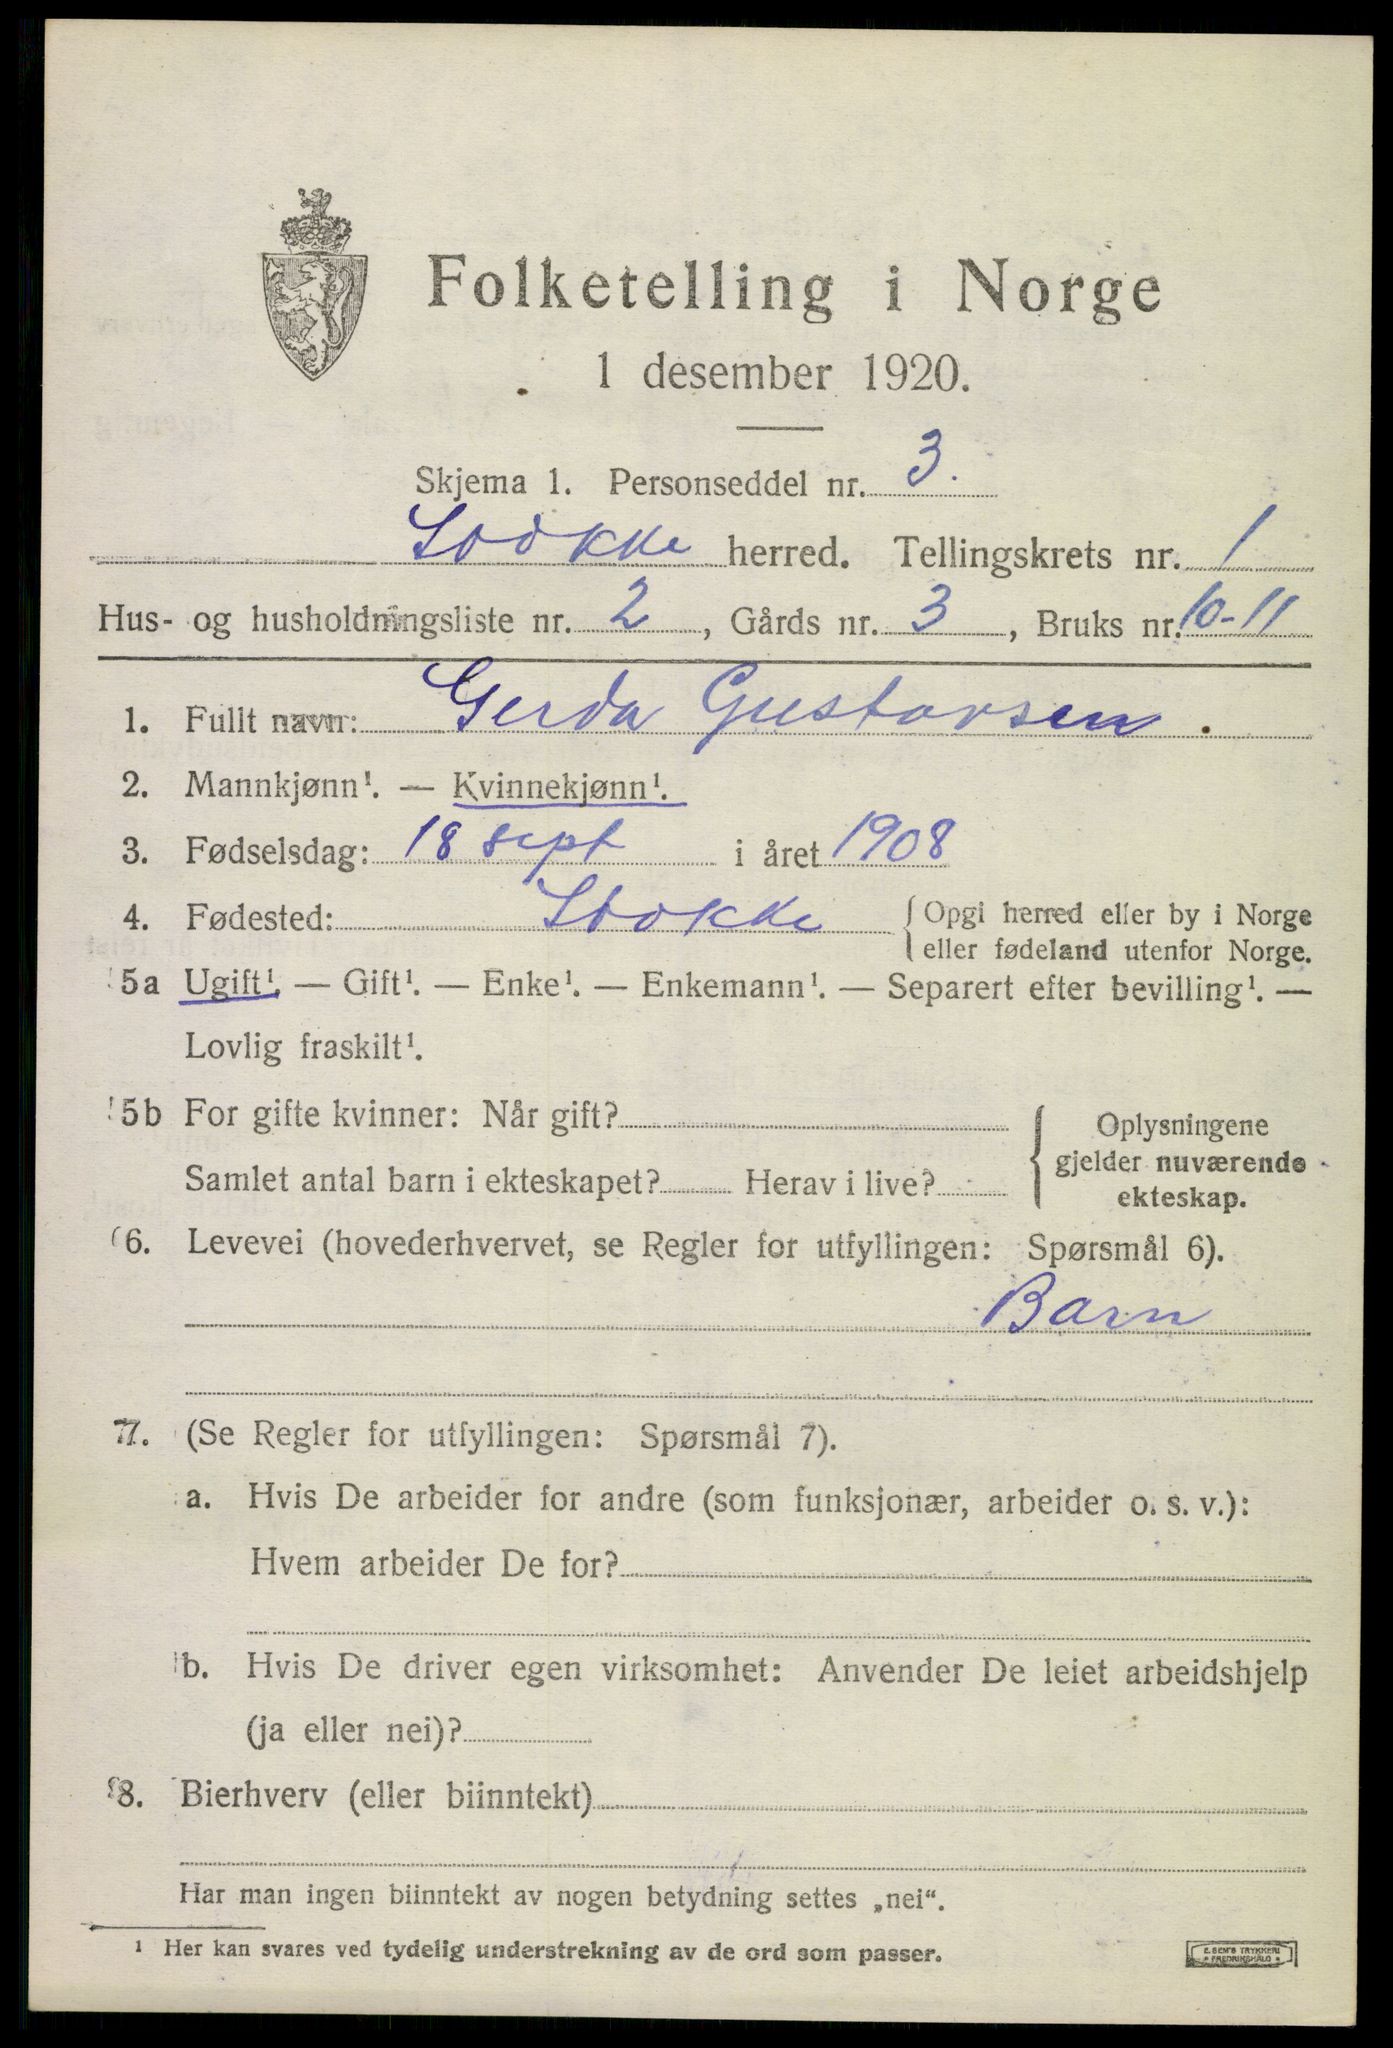 Folketelling i Norge
1 desember 1920.
Skjema 1. Personseddel nr. 3.
Stokke herred. Tellingskrets nr. 1
Hus- og husholdningsliste nr. 2, Gårds nr. 3, Bruks nr. 10-11
1. Fullt navn: Gerda Gustavsen.
2. Mannkjønn¹. — Kvinnekjønn¹.
3. Fødselsdag: 18 sept i året 1908
4. Fødested: Stokke { Opgi herred eller by i Norge
eller fødeland utenfor Norge.
5a Ugift¹. — Gift¹. — Enke¹. — Enkemann¹. — Separert efter bevilling¹. —
Lovlig fraskilt¹.
5b For gifte kvinner: Når gift?
Samlet antal barn i ekteskapet? Herav i live?
{ Oplysningene
gjelder nuværende
ekteskap.
6. Levevei (hovederhvervet, se Regler for utfyllingen: Spørsmål 6).
Barn
7. (Se Regler for utfyllingen: Spørsmål 7).
a. Hvis De arbeider for andre (som funksjonær, arbeider o. s. v.):
Hvem arbeider De for?
b. Hvis De driver egen virksomhet: Anvender De leiet arbeidshjelp
(ja eller nei)?
8. Bierhverv (eller biinntekt)
Har man ingen biinntekt av nogen betydning settes „nei“.
¹ Her kan svares ved tydelig understrekning av de ord som passer.
E. SEM'S TRYKKERI
FREDRIKSHALD